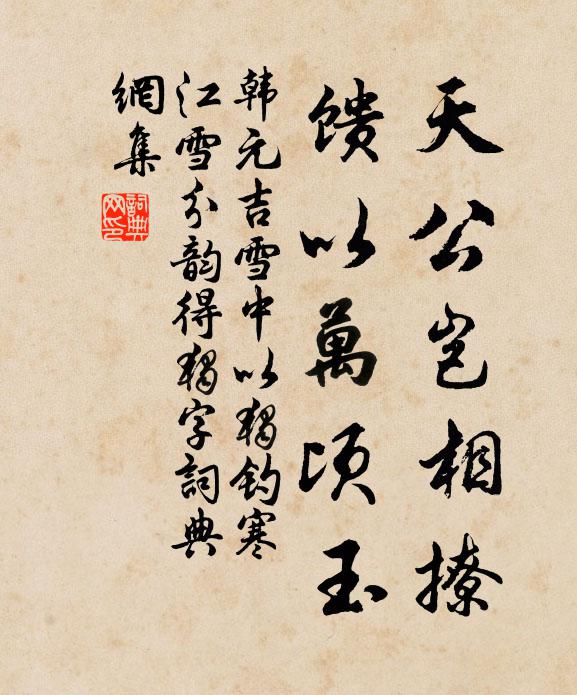 天公岂相撩
馈以萬顷玉
韩元吉雪中以獨钓寒
江雪分韵得獨字詞典
網集
詞典网印